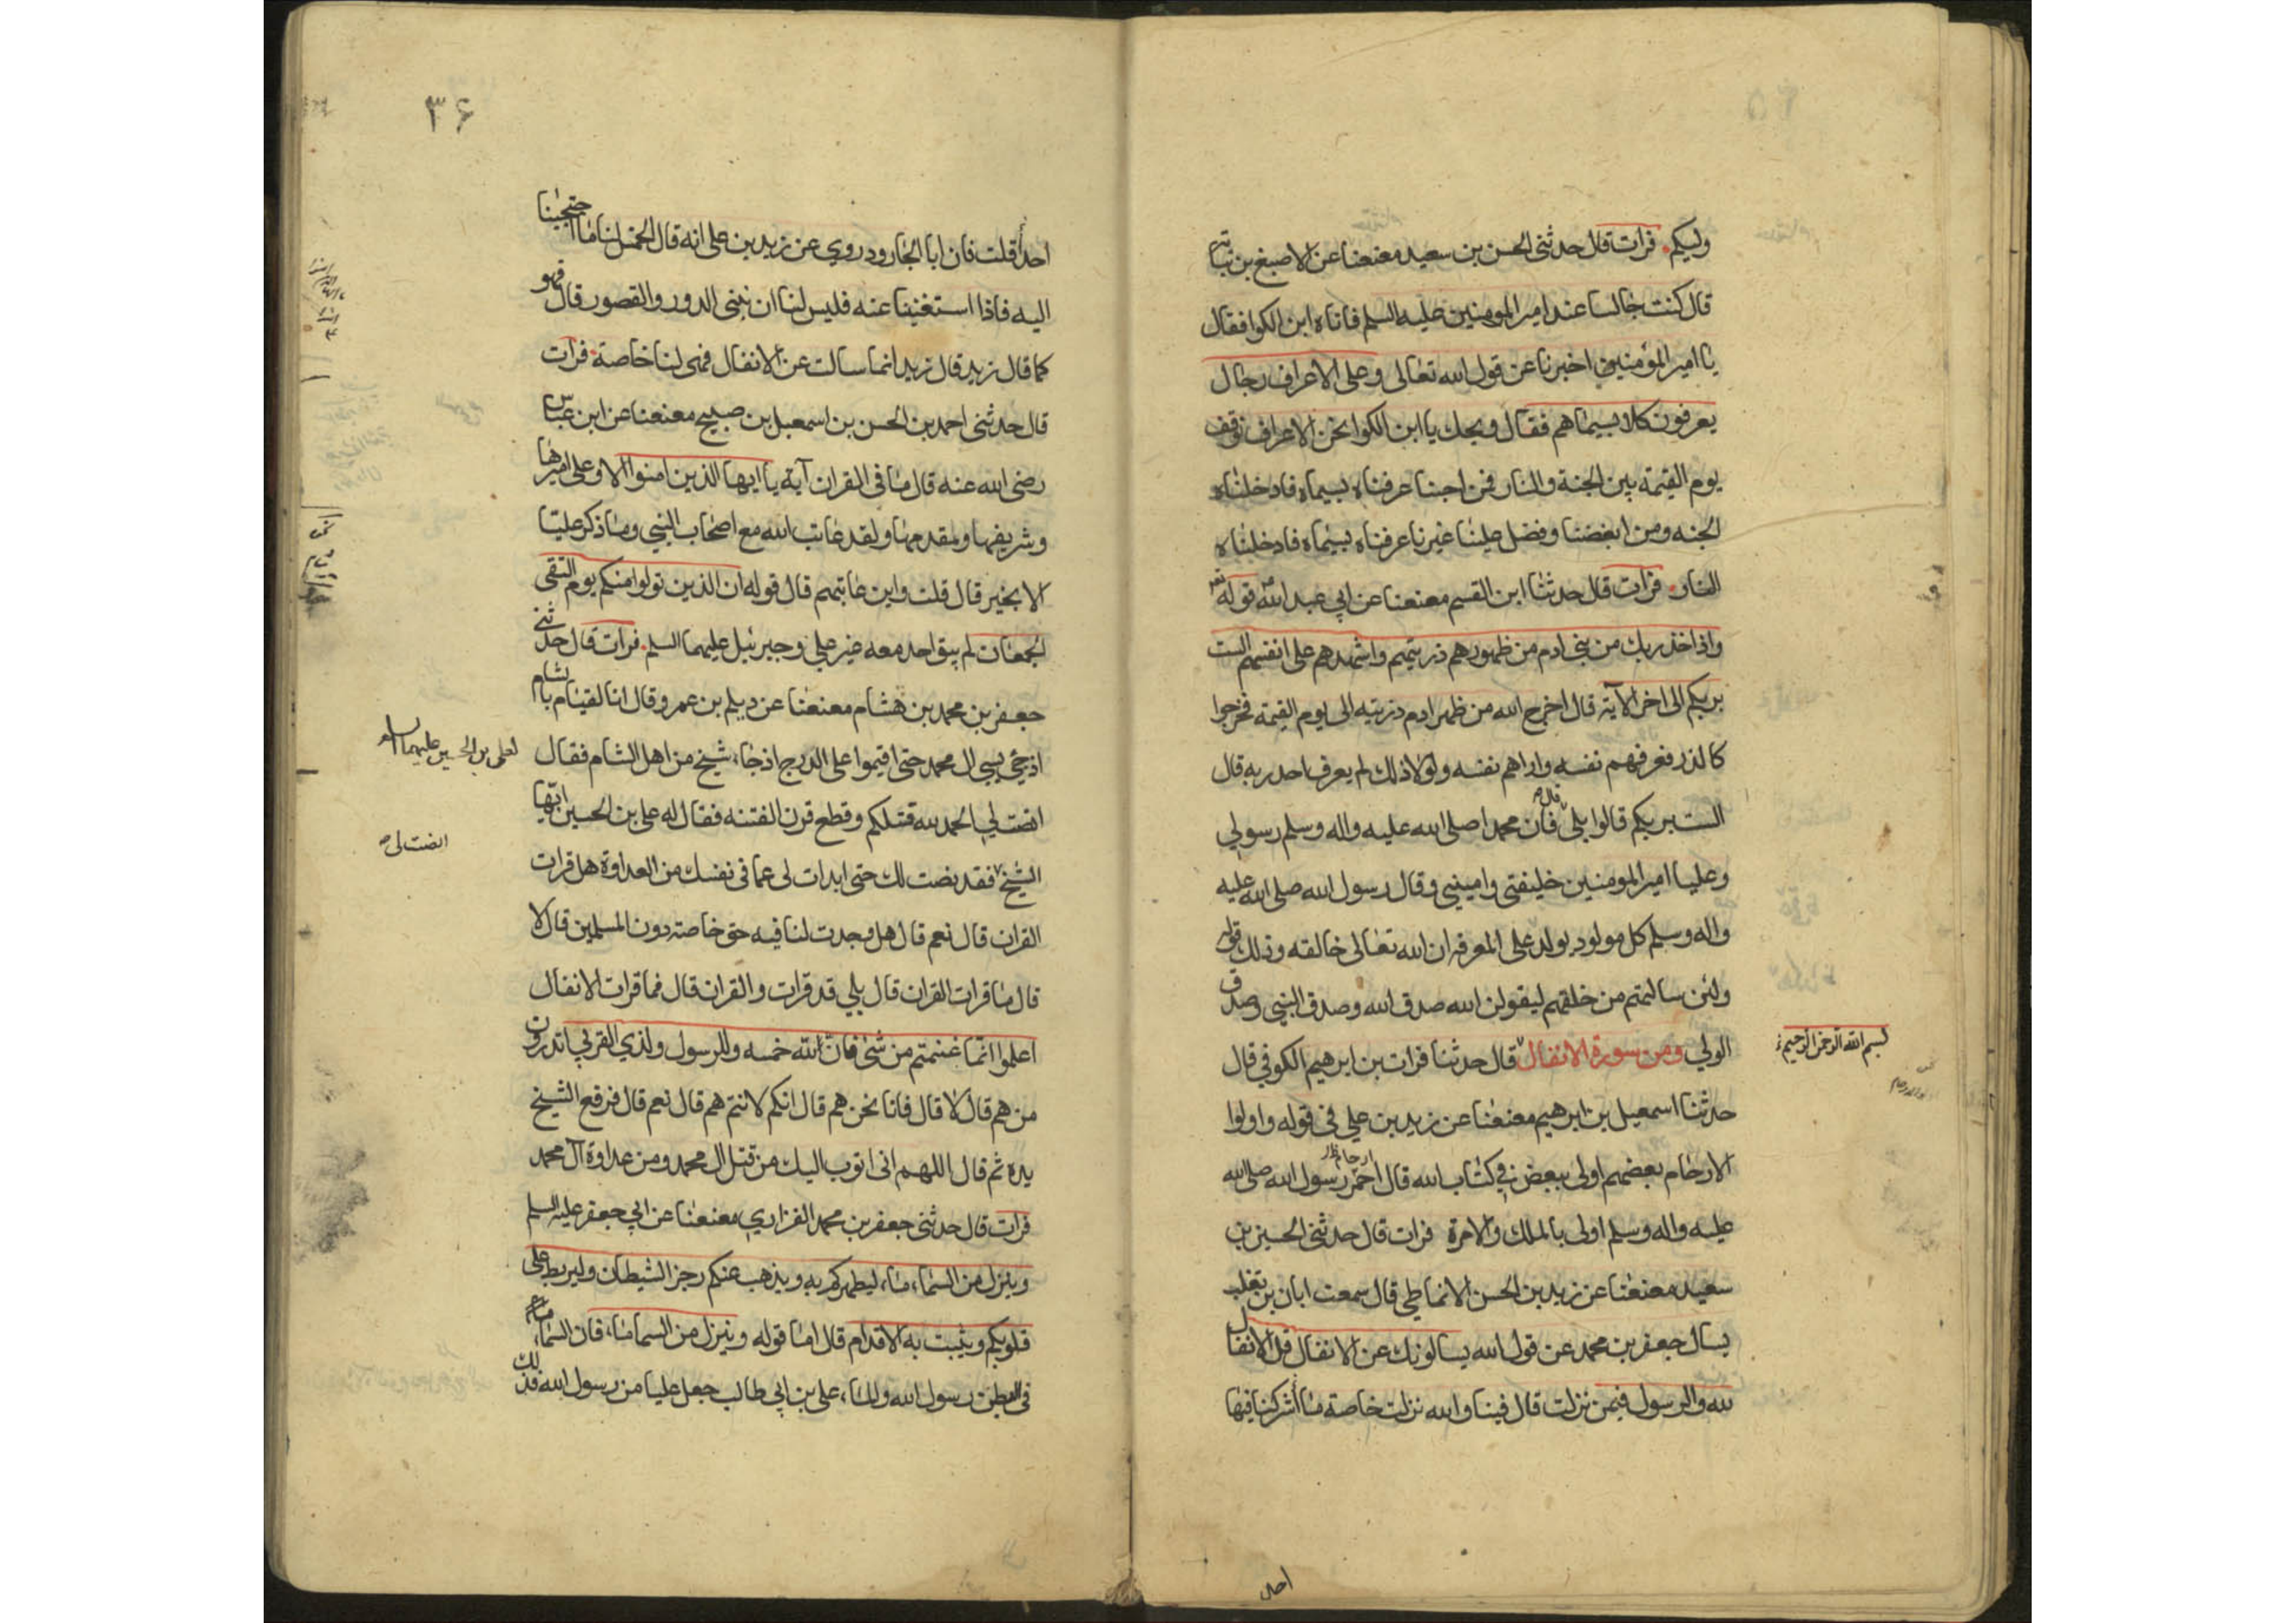 وليكم فرات قال حدثني الحسن بن سعيد معنعنا عن الاصبغ بن نباتة
قال كنت جالسا عند امير المومنين عليه السلم فاتاه ابن الكوا فقال
يا امير المؤمنين اخبرنا عن قول الله تعالى وعلى الاعراف رجال
يعرفون كلا بسيماهم فقال ويحك يا ابن الكوا نحن الاعراف نوقف
يوم القيمة بين الجنة والنار فمن احبنا عرفناه بسيماه فادخلناه
الجنه ومن ابغضنا وفضل علينا غيرنا عرفناه بسيماه فادخلناه
النار فرات قال حدثنا ابن القسم معنعنا عن ابي عبد الله قوله
واذ اخذ ربك من بني ادم من ظهورهم ذريتهم واشهدهم على انفسهم الست
بربكم الى اخر الآية قال اخرج الله من ظهر ادم ذريته الى يوم القيمة فخرجوا
كالذر فعرفهم نفسه واراهم نفسه ولولا ذلك لم يعرف احد ربه قال
الست بربكم قالوا بلى قال فان محمدا صلى الله عليه واله وسلم رسولي
وعليا امير المومنين خليفتي واميني وقال رسول الله صلى الله عليه
واله وسلم كل مولود يولد على المعرفة ان الله تعالى خالقه وذلك قوله
ولئن سالتهم من خلقهم ليقولن الله صدق الله وصدق النبي وصدق
الولي ومن سورة الانفال قال حدثنا فرات بن ابرهيم الكوفي قال
بسم الله الرحمن الرحيم
حدثنا اسمعيل بن ابرهيم معنعنا عن زيد بن علي في قوله واولوا
الارحام بعضهم اولى ببعض في كتاب الله قال ارحام رسول الله صلى الله
عليه واله وسلم اولى بالملك والامرة فرات قال حدثني الحسين بن
سعيد معنعنا عن زيد بن الحسن الانماطي قال سمعت ابان بن تغلب
يسال جعفر بن محمد عن قول الله يسالونك عن الانفال قل الانفال
لله والرسول فيمن نزلت قال فينا والله نزلت خاصة ما اشركنا فيها
احد
٣۶
احد قلت فان ابا الجارود روي عن زيد بن علي انه قال الخمس لنا ما احتجنا
اليه فاذا استغنينا عنه فليس لنا ان نبني الدور والقصور قال فهو
كما قال زيد قال زيد انما سالت عن الانفال فهي لنا خاصة فرات
قال حدثني احمد بن الحسن بن اسمعيل بن صبيح معنعنا عن ابن عباس
رضي الله عنه قال ما في القران آية يا ايها الذين امنوا الا وعلي اميرها
وشريفها ومقدمها ولقد عاتب الله مع اصحاب النبي وما ذكر عليا
الا بخير قال قلت واين عاتبهم قال قوله ان الذين تولوا منكم يوم التقى
الجمعان لم يبق احد معه غير علي وجبرئيل عليهما السلم فرات قال حدثني
جعفر بن محمد بن هشام معنعنا عن ديلم بن عمرو قال انا لقيام بالشام
اذ جئ بسبي ال محمد حتى اقيموا على الدرج اذ جاء شيخ من اهل الشام فقال
لعلي بن الحسين عليهما السلم
الحمد لله قتلكم وقطع قرن الفتنه فقال له علي بن الحسين ايها
انصت لي
الشيخ فقد نصت لك حتى ابدات لي عما في نفسك من العداوة هل قرات
القران قال نعم قال هل وجدت لنا فيه حق خاصة دون المسلمين قال لا
قال ما قرات القران قال بلي قد قرات والقران قال فما قرات الانفال
اعلموا انما غنمتم من شئ فان لله خمسه وللرسول ولذي القربي اتدرون
من هم قال لا قال فانا نحن هم قال انكم لانتم هم قال نعم قال فرفع الشيخ
يده ثم قال اللهم اني اتوب اليك من قتل ال محمد ومن عداوة آل محمد
فرات قال حدثني جعفر بن محمد الفزاري معنعنا عن ابي جعفر عليه السلم
وينزل من السماء ماء ليطهركم به ويذهب عنكم رجز الشيطان وليربط على
قلوبكم ويثبت به الاقدام قال اما قوله وينزل من السما ماء فان السماء
في البطن رسول الله والماء علي بن ابي طالب جعل عليا من رسول الله فذلك